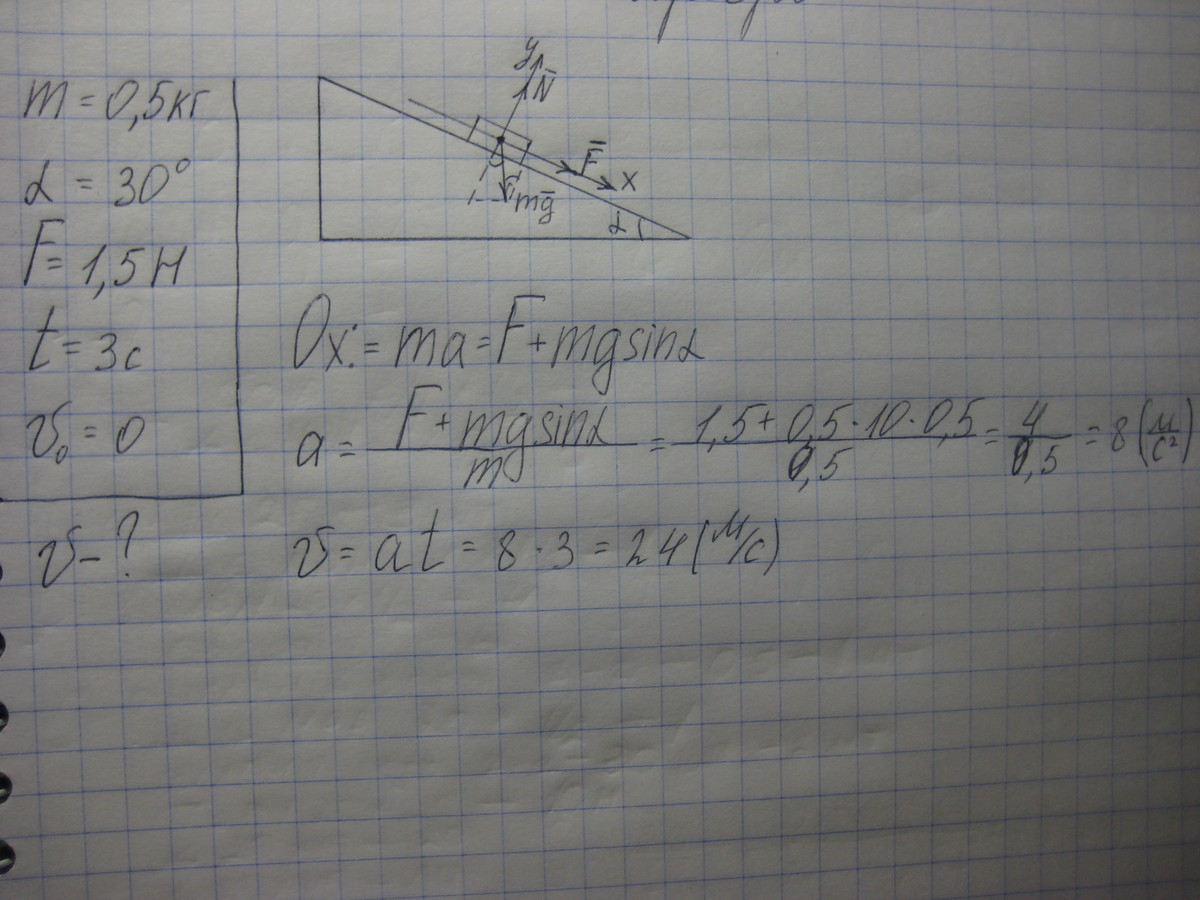 m = 0,5кг
α = 30°
F = 1,5Н
t = 3с
v₀ = 0
v - ?
y
N̅
F̅
x
mg̅
α
Ox: = ma = F + mgsinα
a = (F + mgsinα)/m = (1,5 + 0,5 · 10 · 0,5)/0,5 = 4/0,5 = 8 (м/с²)
v = at = 8 · 3 = 24 (м/с)